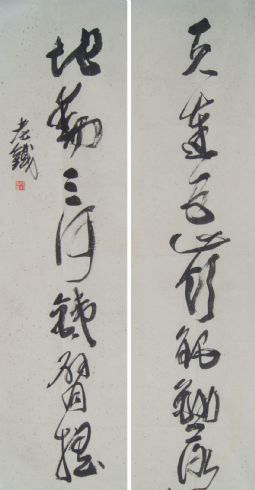 天連五嶺銀鋤落
地動三河鐵臂搖
老鐵